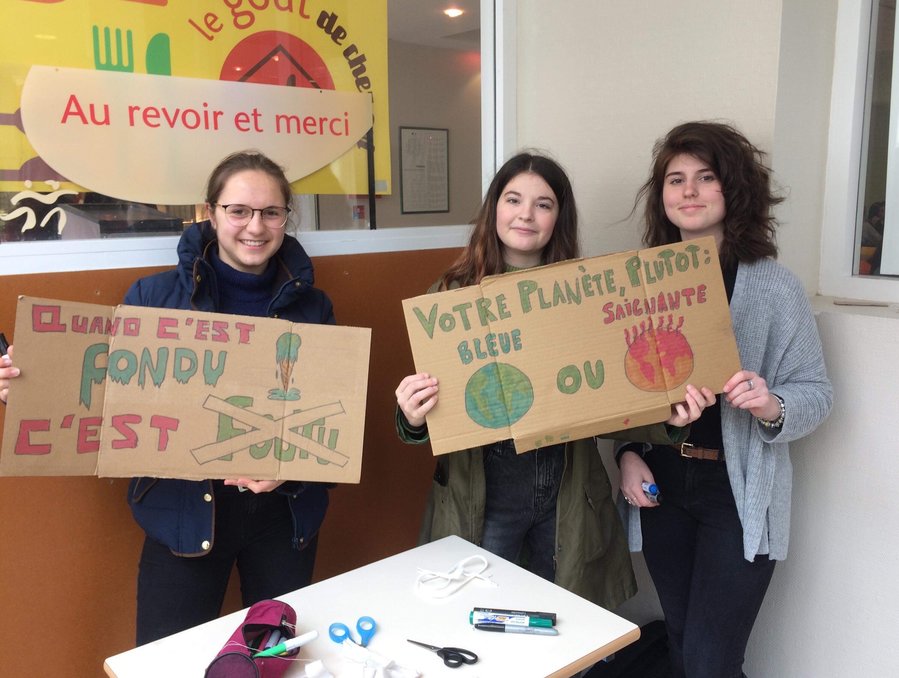 le goût de chez
Au revoir et merci
QUAND C'EST
FONDU
C'EST FOUTU
VOTRE PLANÈTE, PLUTOT:
BLEUE OU SAIGNANTE